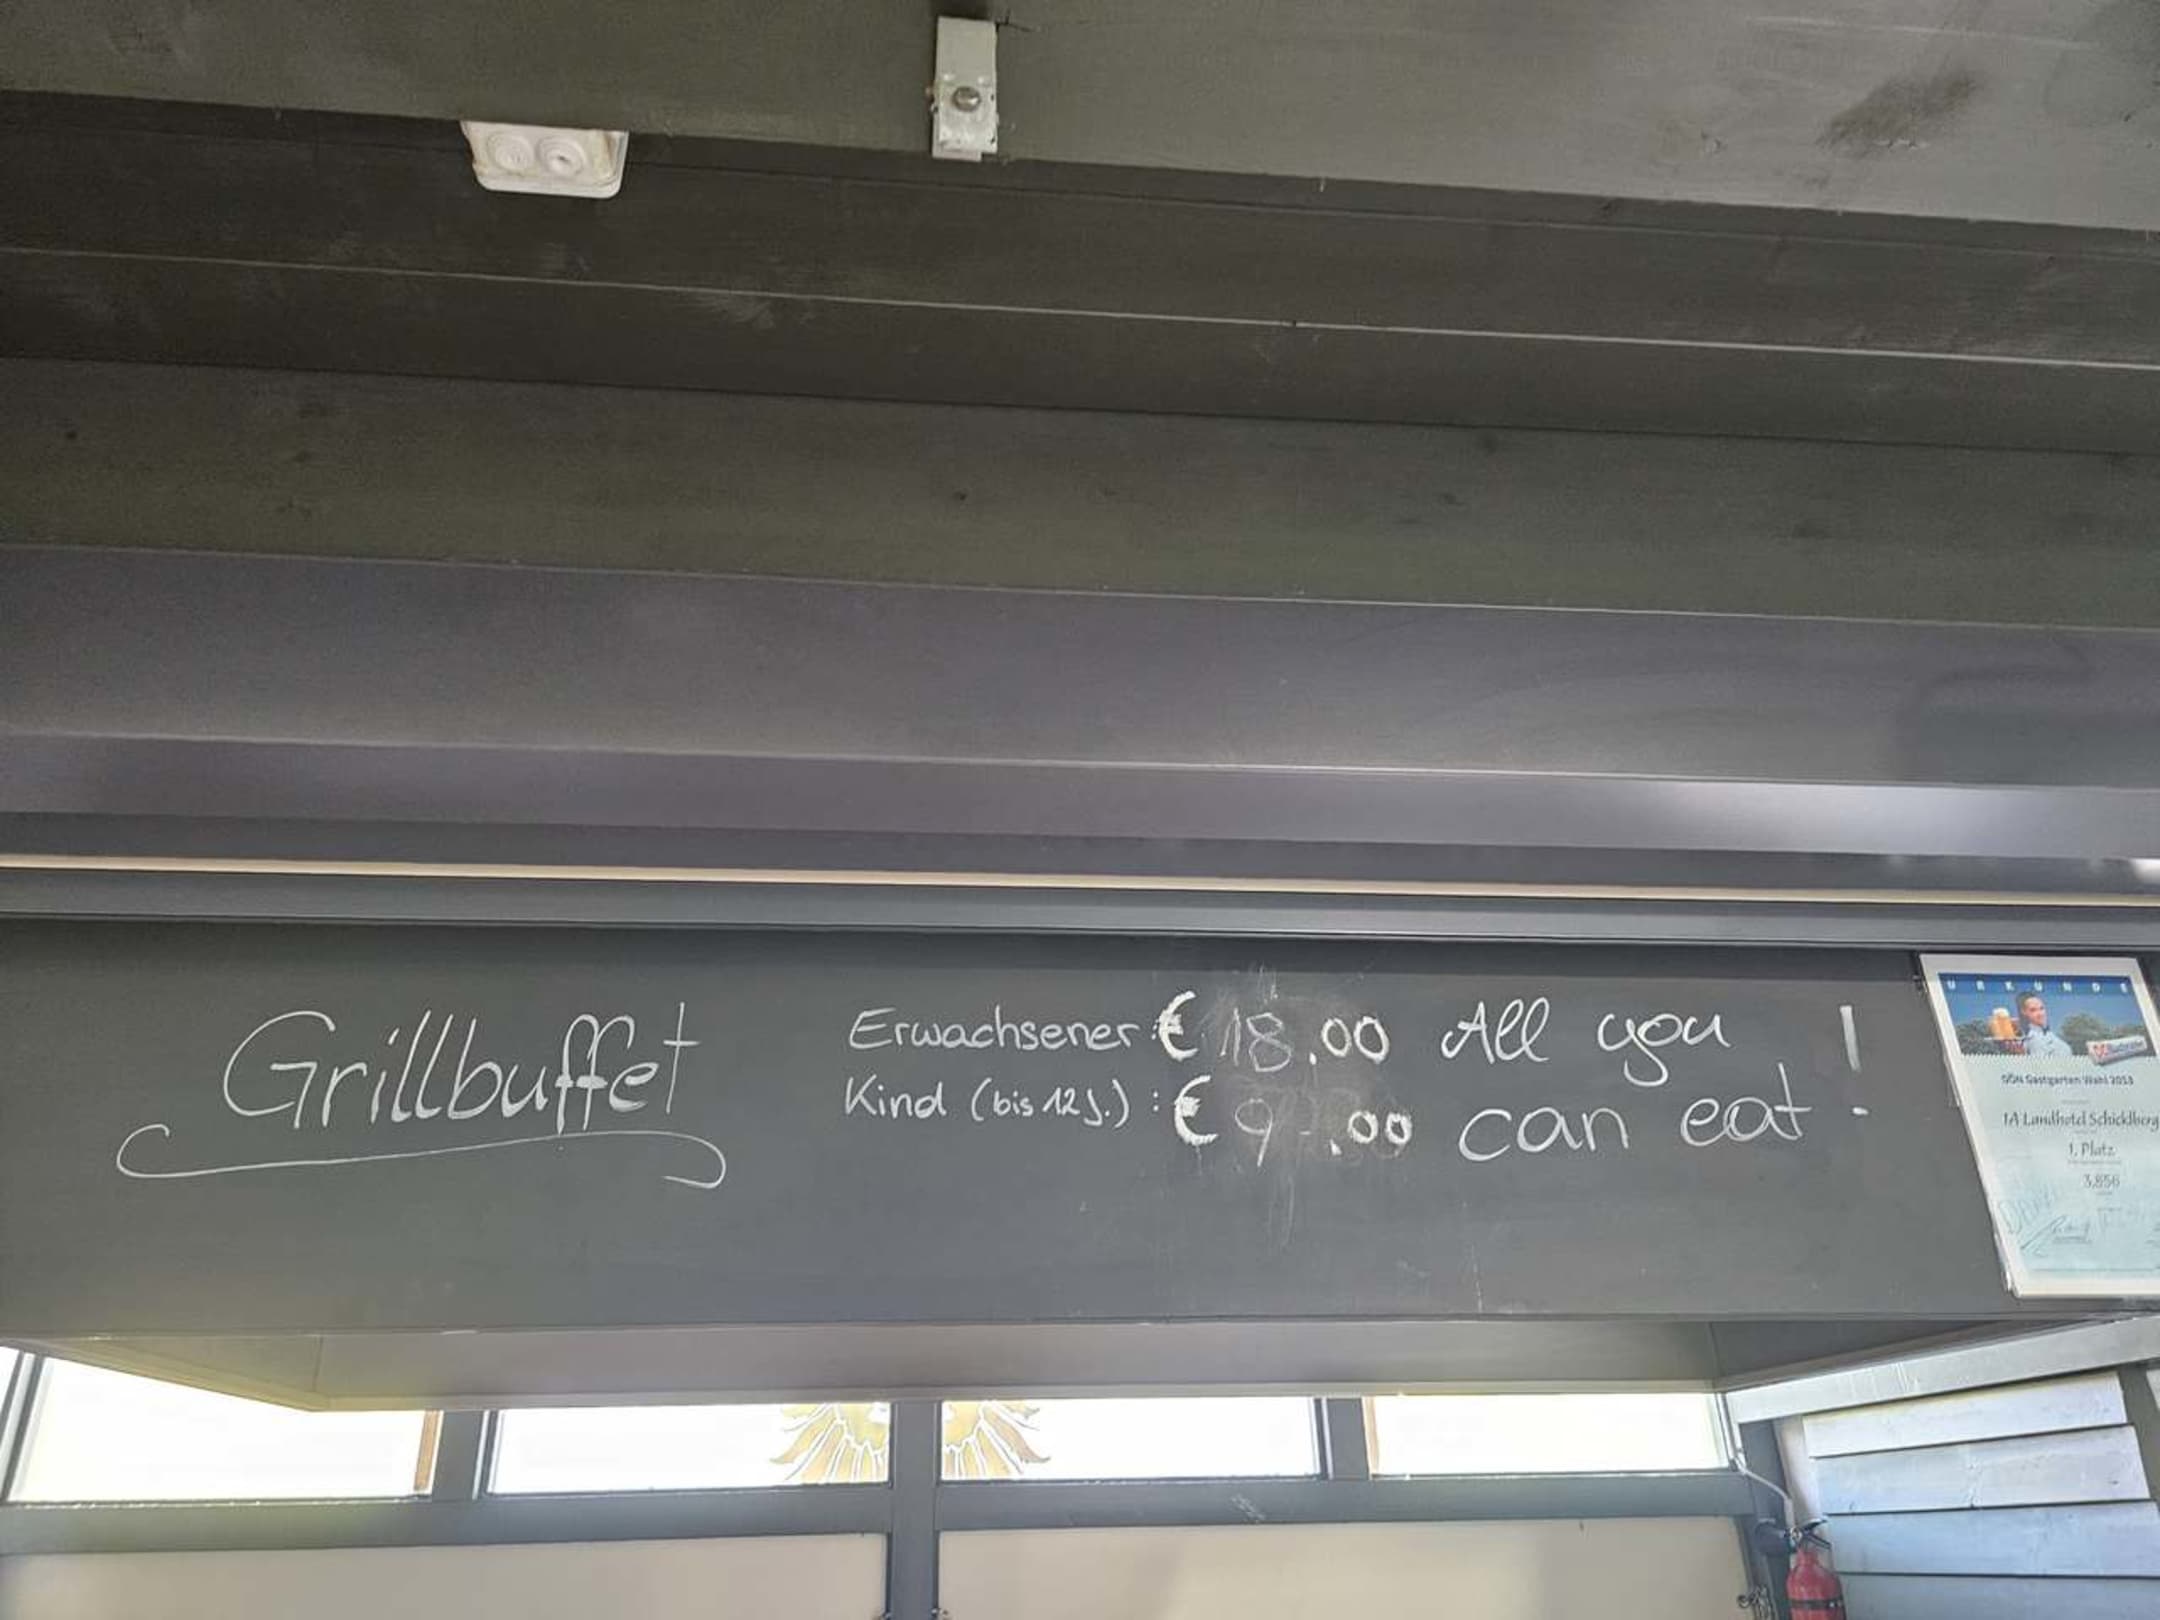 Grillbuffet
Erwachsener: € 18.00 All you
Kind (bis 12 J.) : € 9.00 can eat !
URKUNDE
GÖN Gastgarten Wahl 2013
1A Landhotel Schicklberg
1. Platz
3,856